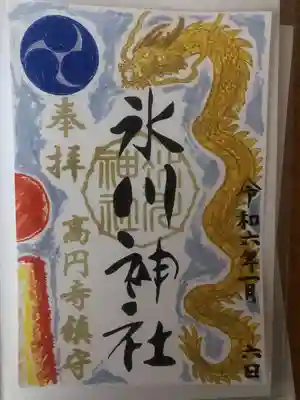 令和六年一月六日
氷川神社
奉拝
高円寺鎮守
氷川神社